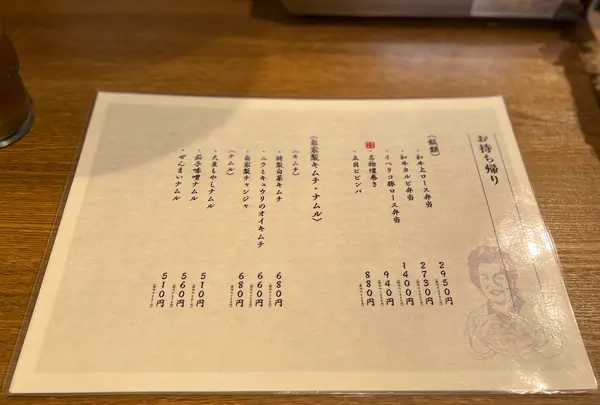 お持ち帰り
〈飯類〉
・和牛上ロース弁当 2950円
・和牛カルビ弁当 2730円
・イベリコ豚ロース弁当 1400円
・名物壇巻き 940円
・五目ビビンバ 880円
〈自家製キムチ・ナムル〉
〈キムチ〉
・特製白菜キムチ 680円
・ニラとキュウリのオイキムチ 660円
・自家製チャンジャ 680円
〈ナムル〉
・大豆もやしナムル 510円
・茄子味噌ナムル 560円
・ぜんまいナムル 510円